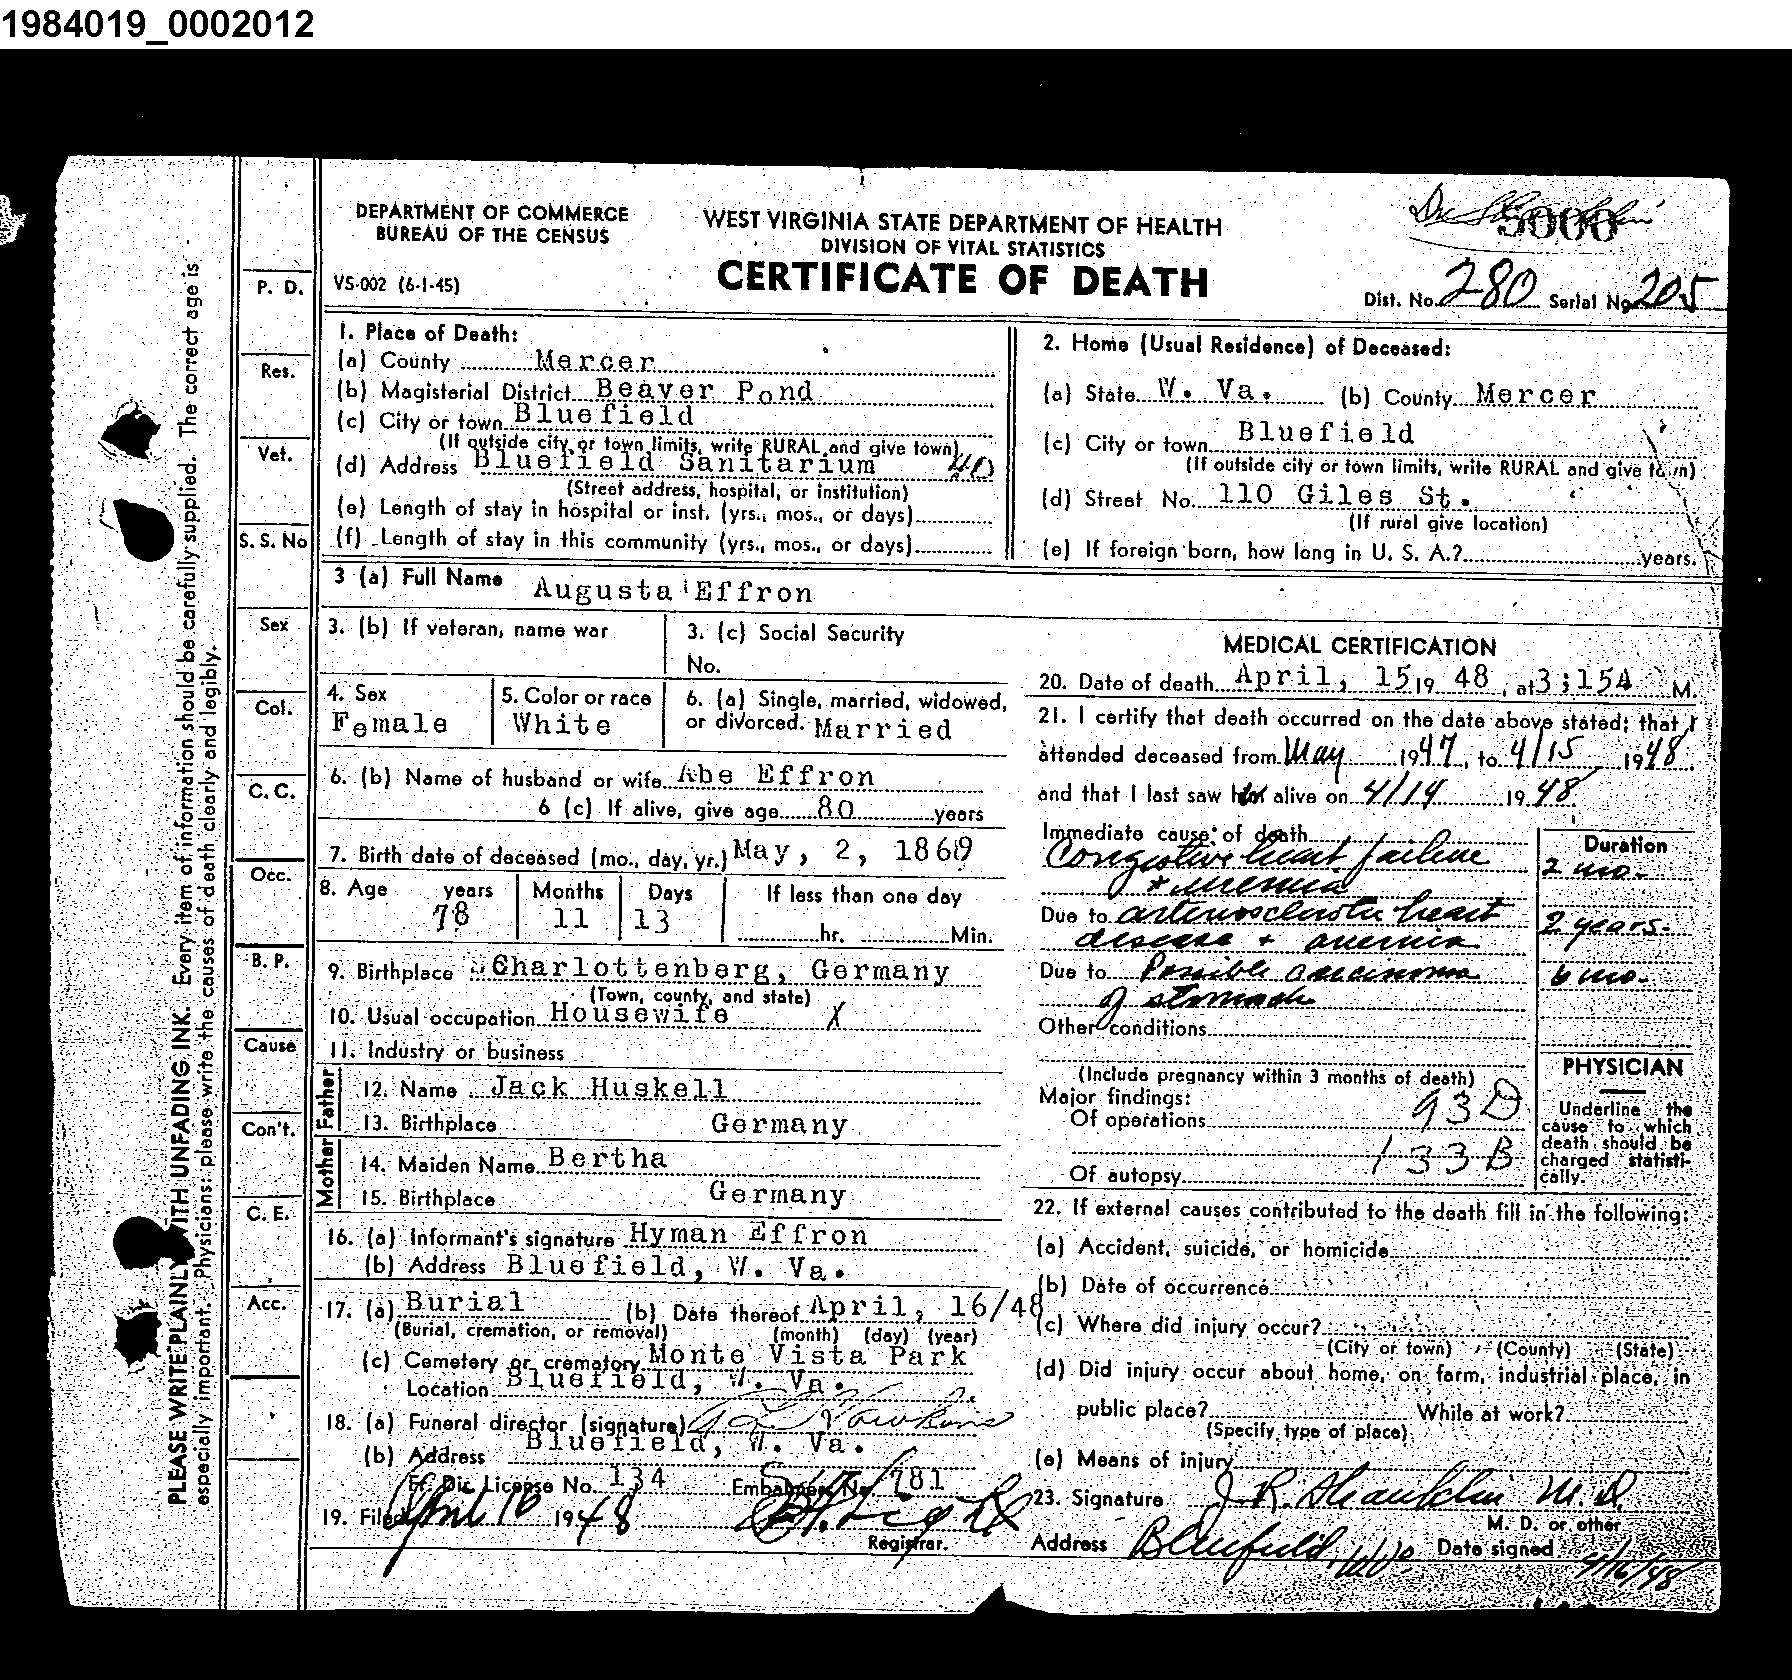 1984019_0002012
DEPARTMENT OF COMMERCE
BUREAU OF THE CENSUS
WEST VIRGINIA STATE DEPARTMENT OF HEALTH
DIVISION OF VITAL STATISTICS
CERTIFICATE OF DEATH
VS-002 (6-1-45)
5000
Dist. No. 280 Serial No. 205
1. Place of Death:
(a) County Mercer
(b) Magisterial District Beaver Pond
(c) City or town Bluefield
(If outside city or town limits, write RURAL and give town)
(d) Address Bluefield Sanitarium 40
(Street address, hospital, or institution)
(e) Length of stay in hospital or inst. (yrs., mos., or days)
(f) Length of stay in this community (yrs., mos., or days)
2. Home (Usual Residence) of Deceased:
(a) State W. Va. (b) County Mercer
(c) City or town Bluefield
(If outside city or town limits, write RURAL and give town)
(d) Street No. 110 Giles St.
(If rural give location)
(e) If foreign born, how long in U. S. A.? years.
3 (a) Full Name Augusta Effron
3. (b) If veteran, name war
3. (c) Social Security
No.
4. Sex
Female
5. Color or race
White
6. (a) Single, married, widowed,
or divorced. Married
6. (b) Name of husband or wife Abe Effron
6 (c) If alive, give age 80 years
7. Birth date of deceased (mo., day, yr.) May, 2, 1869
8. Age years Months Days If less than one day
78 11 13 hr. Min.
9. Birthplace Charlottenberg, Germany
(Town, county, and state)
10. Usual occupation Housewife X
11. Industry or business
Father
12. Name Jack Huskell
13. Birthplace Germany
Mother
14. Maiden Name Bertha
15. Birthplace Germany
16. (a) Informant's signature Hyman Effron
(b) Address Bluefield, W. Va.
17. (a) Burial (b) Date thereof April, 16/48
(Burial, cremation, or removal) (month) (day) (year)
(c) Cemetery or crematory Monte Vista Park
Location Bluefield, W. Va.
18. (a) Funeral director (signature)
(b) Address Bluefield, W. Va.
F. Dic License No. 134 Embalmers No. 781
19. Filed April 16 1948
Registrar.
MEDICAL CERTIFICATION
20. Date of death April, 15, 19 48, at 3;15A M.
21. I certify that death occurred on the date above stated; that I
attended deceased from May 1947, to 4/15 1948
and that I last saw her alive on 4/14 1948
Immediate cause of death
Congestive heart failure
+ uremia
Due to arteriosclerotic heart
disease + anemia
Due to Possible carcinoma
of stomach
Duration
2 mo.
2 years.
6 mo.
Other conditions
(Include pregnancy within 3 months of death)
Major findings:
Of operations 93D
133B
Of autopsy
PHYSICIAN
Underline the
cause to which
death should be
charged statisti-
cally.
22. If external causes contributed to the death fill in the following:
(a) Accident, suicide, or homicide
(b) Date of occurrence
(c) Where did injury occur?
(City or town) (County) (State)
(d) Did injury occur about home, on farm, industrial place, in
public place? While at work?
(Specify type of place)
(e) Means of injury
23. Signature J. R. Shanklin M.D.
M. D. or other
Address Bluefield, W.Va. Date signed 4/16/48
P. D.
Res.
Vet.
S. S. No
Sex
Col.
C. C.
Occ.
B. P.
Cause
Con't.
C. E.
Acc.
PLEASE WRITE PLAINLY WITH UNFADING INK. Every item of information should be carefully supplied. The correct age is
especially important. Physicians: please write the causes of death clearly and legibly.